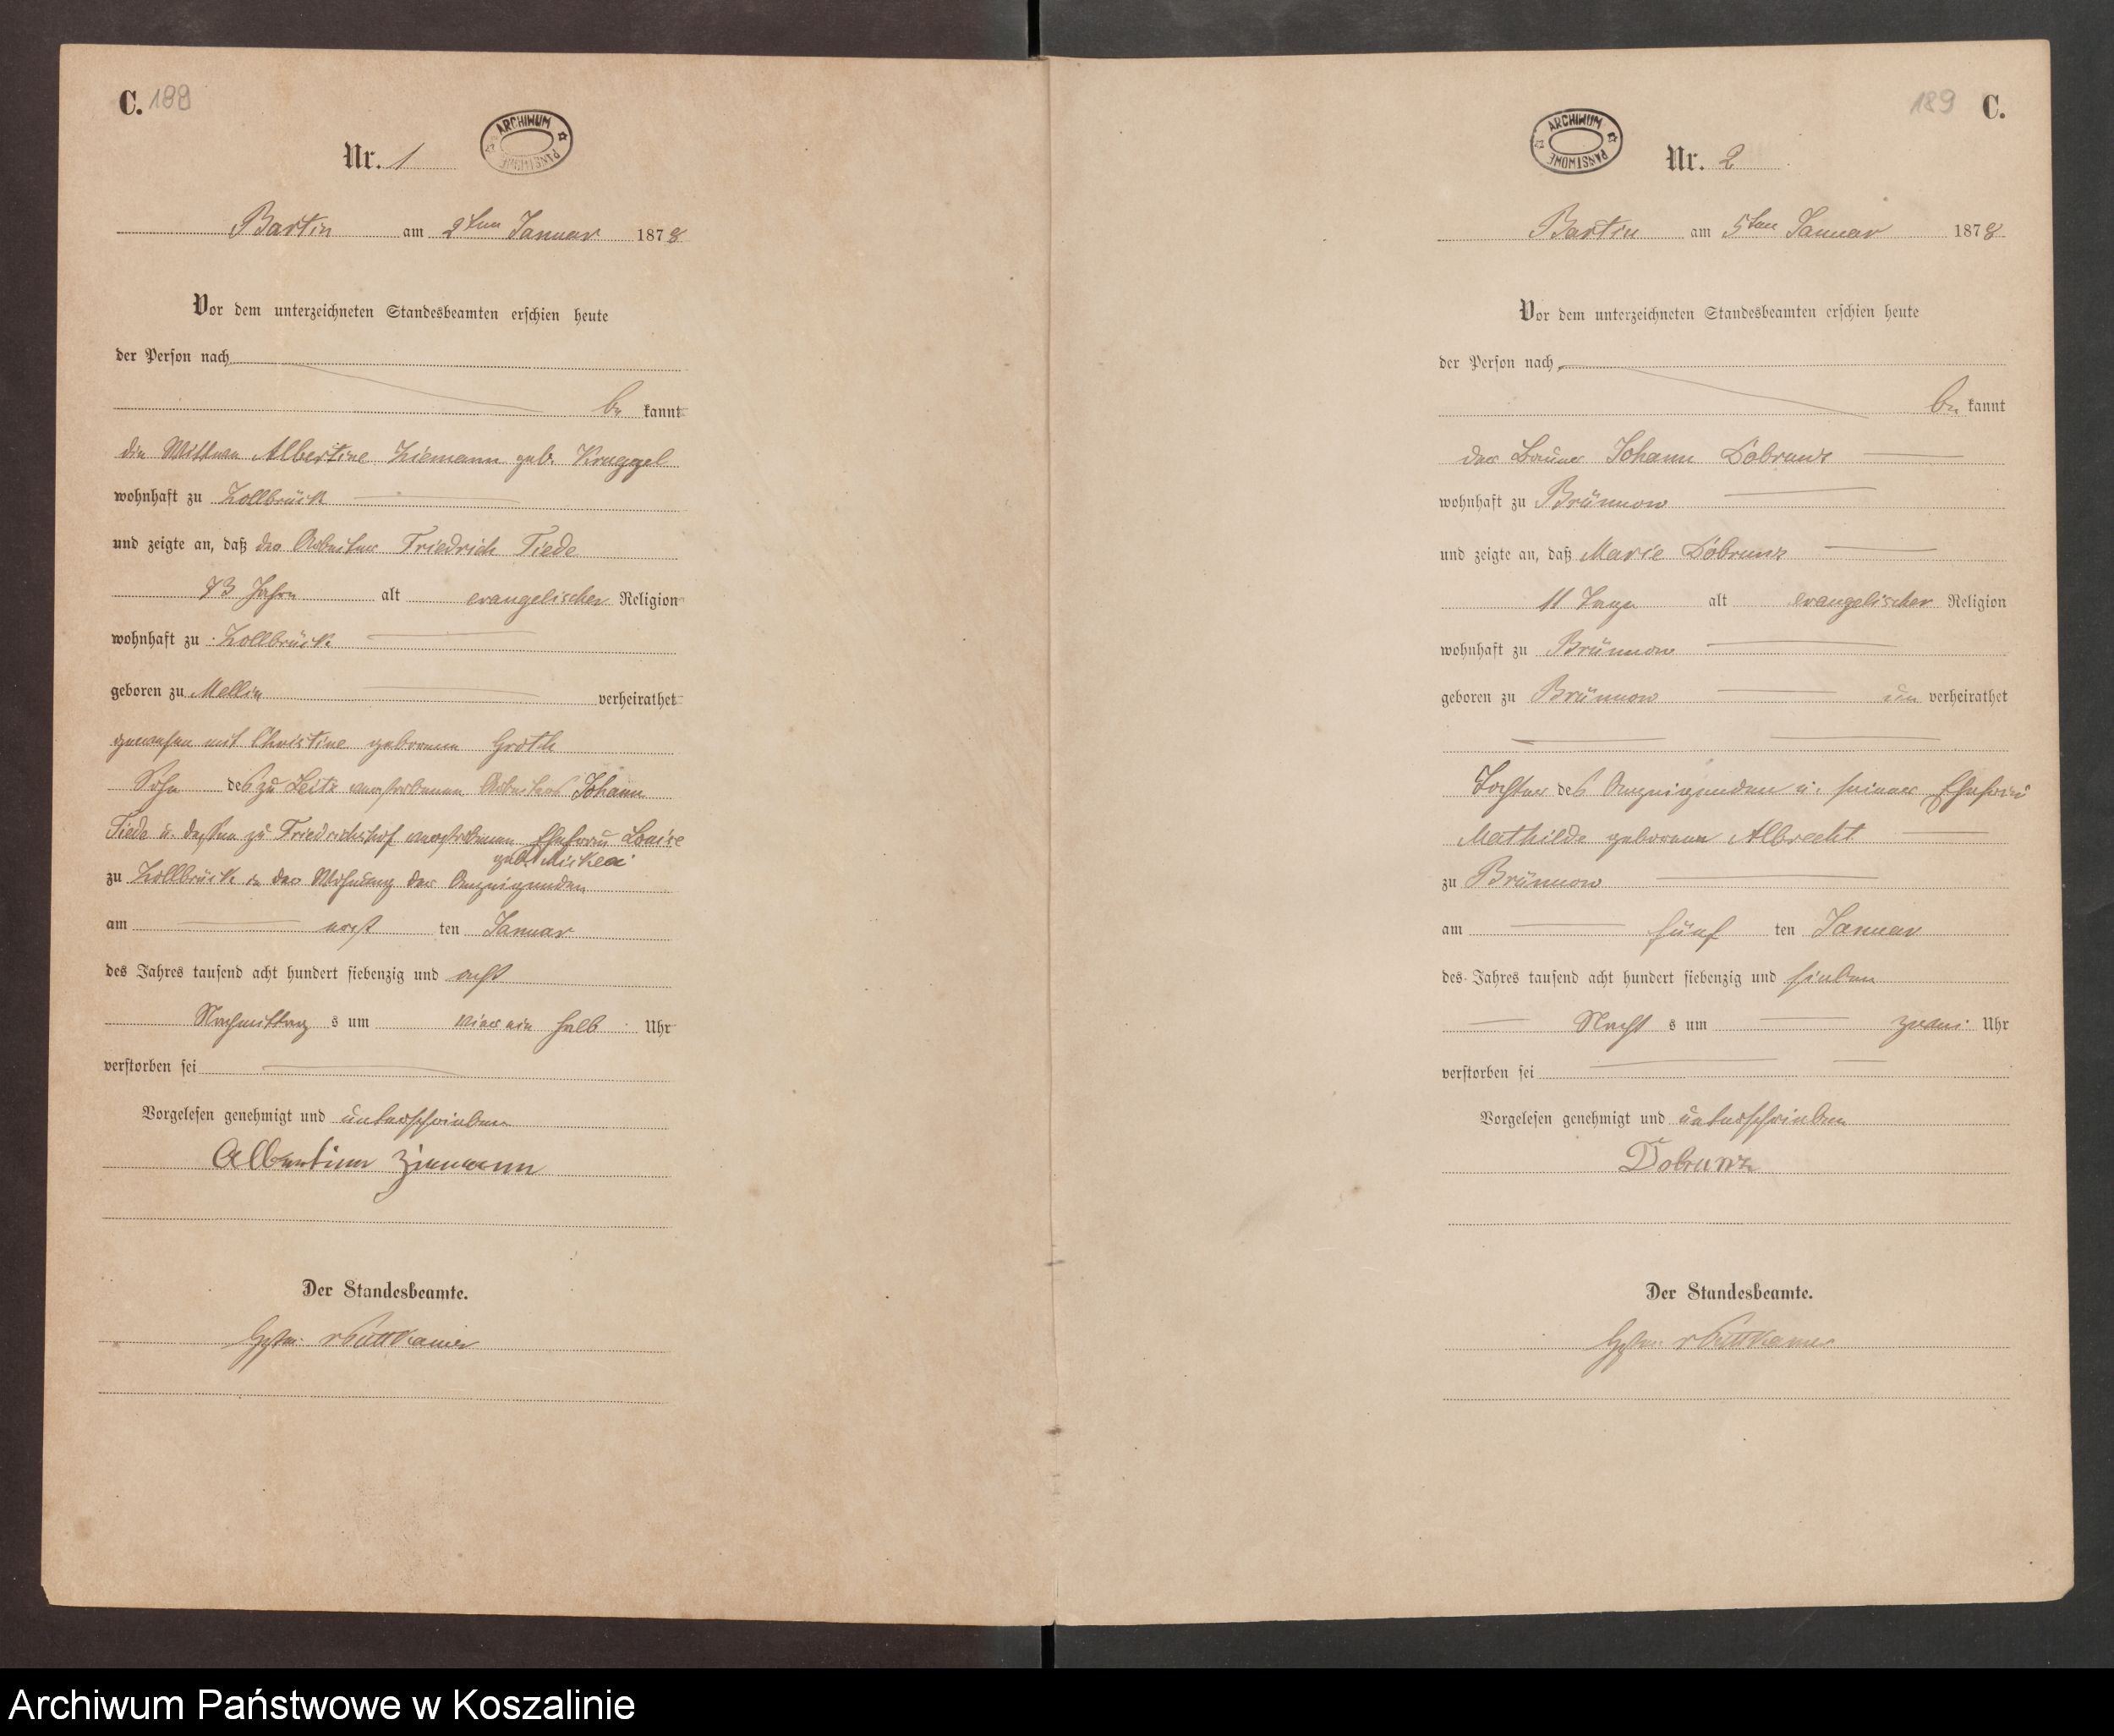 C. 188
ARCHIWUM PAŃSTWOWE
Nr. 1
Bartin am 2ten Januar 1878
Vor dem unterzeichneten Standesbeamten erschien heute
der Person nach
be kannt
die Wittwe Albertine Ziemann geb. Kruggel
wohnhaft zu Zollbrück
und zeigte an, daß der Arbeiter Friedrich Tiede
73 Jahre alt evangelischer Religion
wohnhaft zu Zollbrück
geboren zu Mellin verheirathet
gewesen mit Christine geborenen Groth
Sohn des zu verstorbenen Arbeiters Johann
Tiede u. dessen zu Friedrichshof verstorbenen Ehefrau Louise
geb.
zu Zollbrück in der Wohnung der Anzeigenden
am erst ten Januar
des Jahres tausend acht hundert siebenzig und acht
Nachmittag s um vier ein halb Uhr
verstorben sei
Vorgelesen genehmigt und unterschrieben
Albertine Ziemann
Der Standesbeamte.
vPuttkamer
189 C.
ARCHIWUM PAŃSTWOWE
Nr. 2
Bartin am 5ten Januar 1878
Vor dem unterzeichneten Standesbeamten erschien heute
der Person nach
be kannt
der Bauer Johann Dobrunz
wohnhaft zu Brünnow
und zeigte an, daß Marie Dobrunz
11 Tage alt evangelischer Religion
wohnhaft zu Brünnow
geboren zu Brünnow un verheirathet
Tochter des Anzeigenden u. seiner Ehefrau
Mathilde geborenen Albrecht
zu Brünnow
am fünf ten Januar
des Jahres tausend acht hundert siebenzig und sieben
Nacht s um zwei Uhr
verstorben sei
Vorgelesen genehmigt und unterschrieben
Dobrunz
Der Standesbeamte.
vPuttkamer
Archiwum Państwowe w Koszalinie